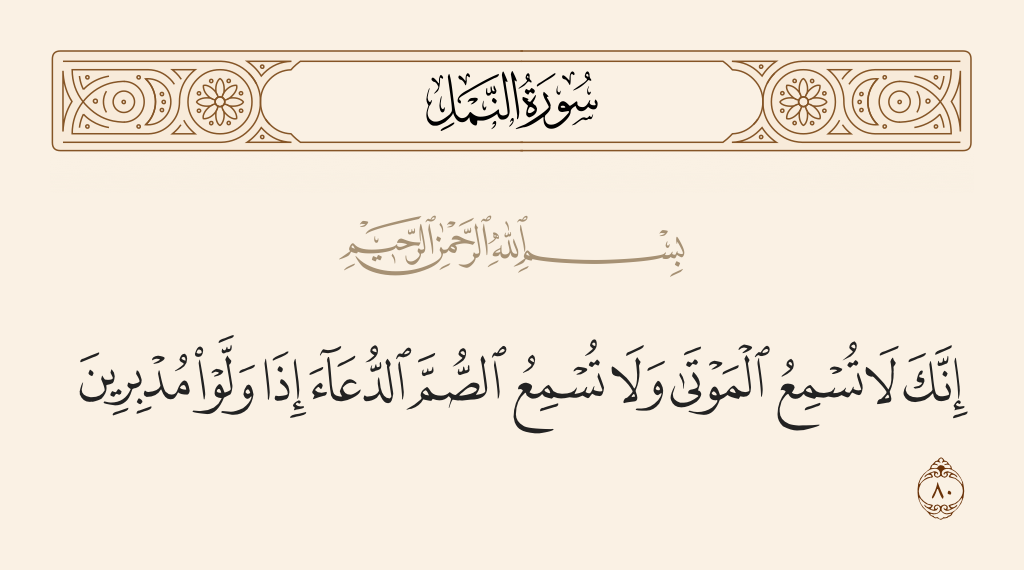 سُورَةُ النَّمْلِ
بِسْمِ ٱللَّهِ ٱلرَّحْمَٰنِ ٱلرَّحِيمِ
إِنَّكَ لَا تُسْمِعُ ٱلْمَوْتَىٰ وَلَا تُسْمِعُ ٱلصُّمَّ ٱلدُّعَآءَ إِذَا وَلَّوْا۟ مُدْبِرِينَ
٨٠